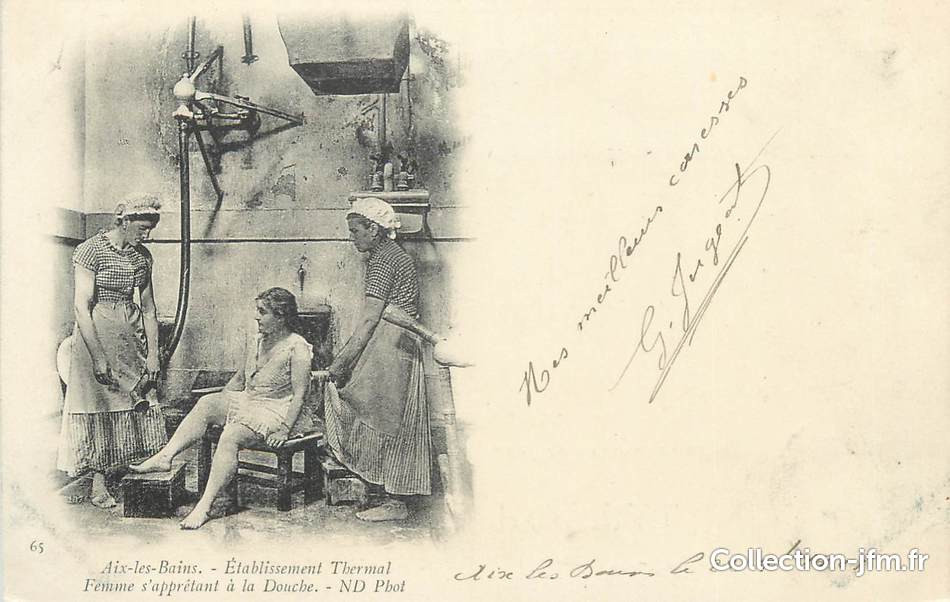 Mes meilleurs caresses
G. Jugeat
65
Aix-les-Bains. - Établissement Thermal
Femme s'apprêtant à la Douche. - ND Phot
Aix les Bains le
Collection-jfm.fr